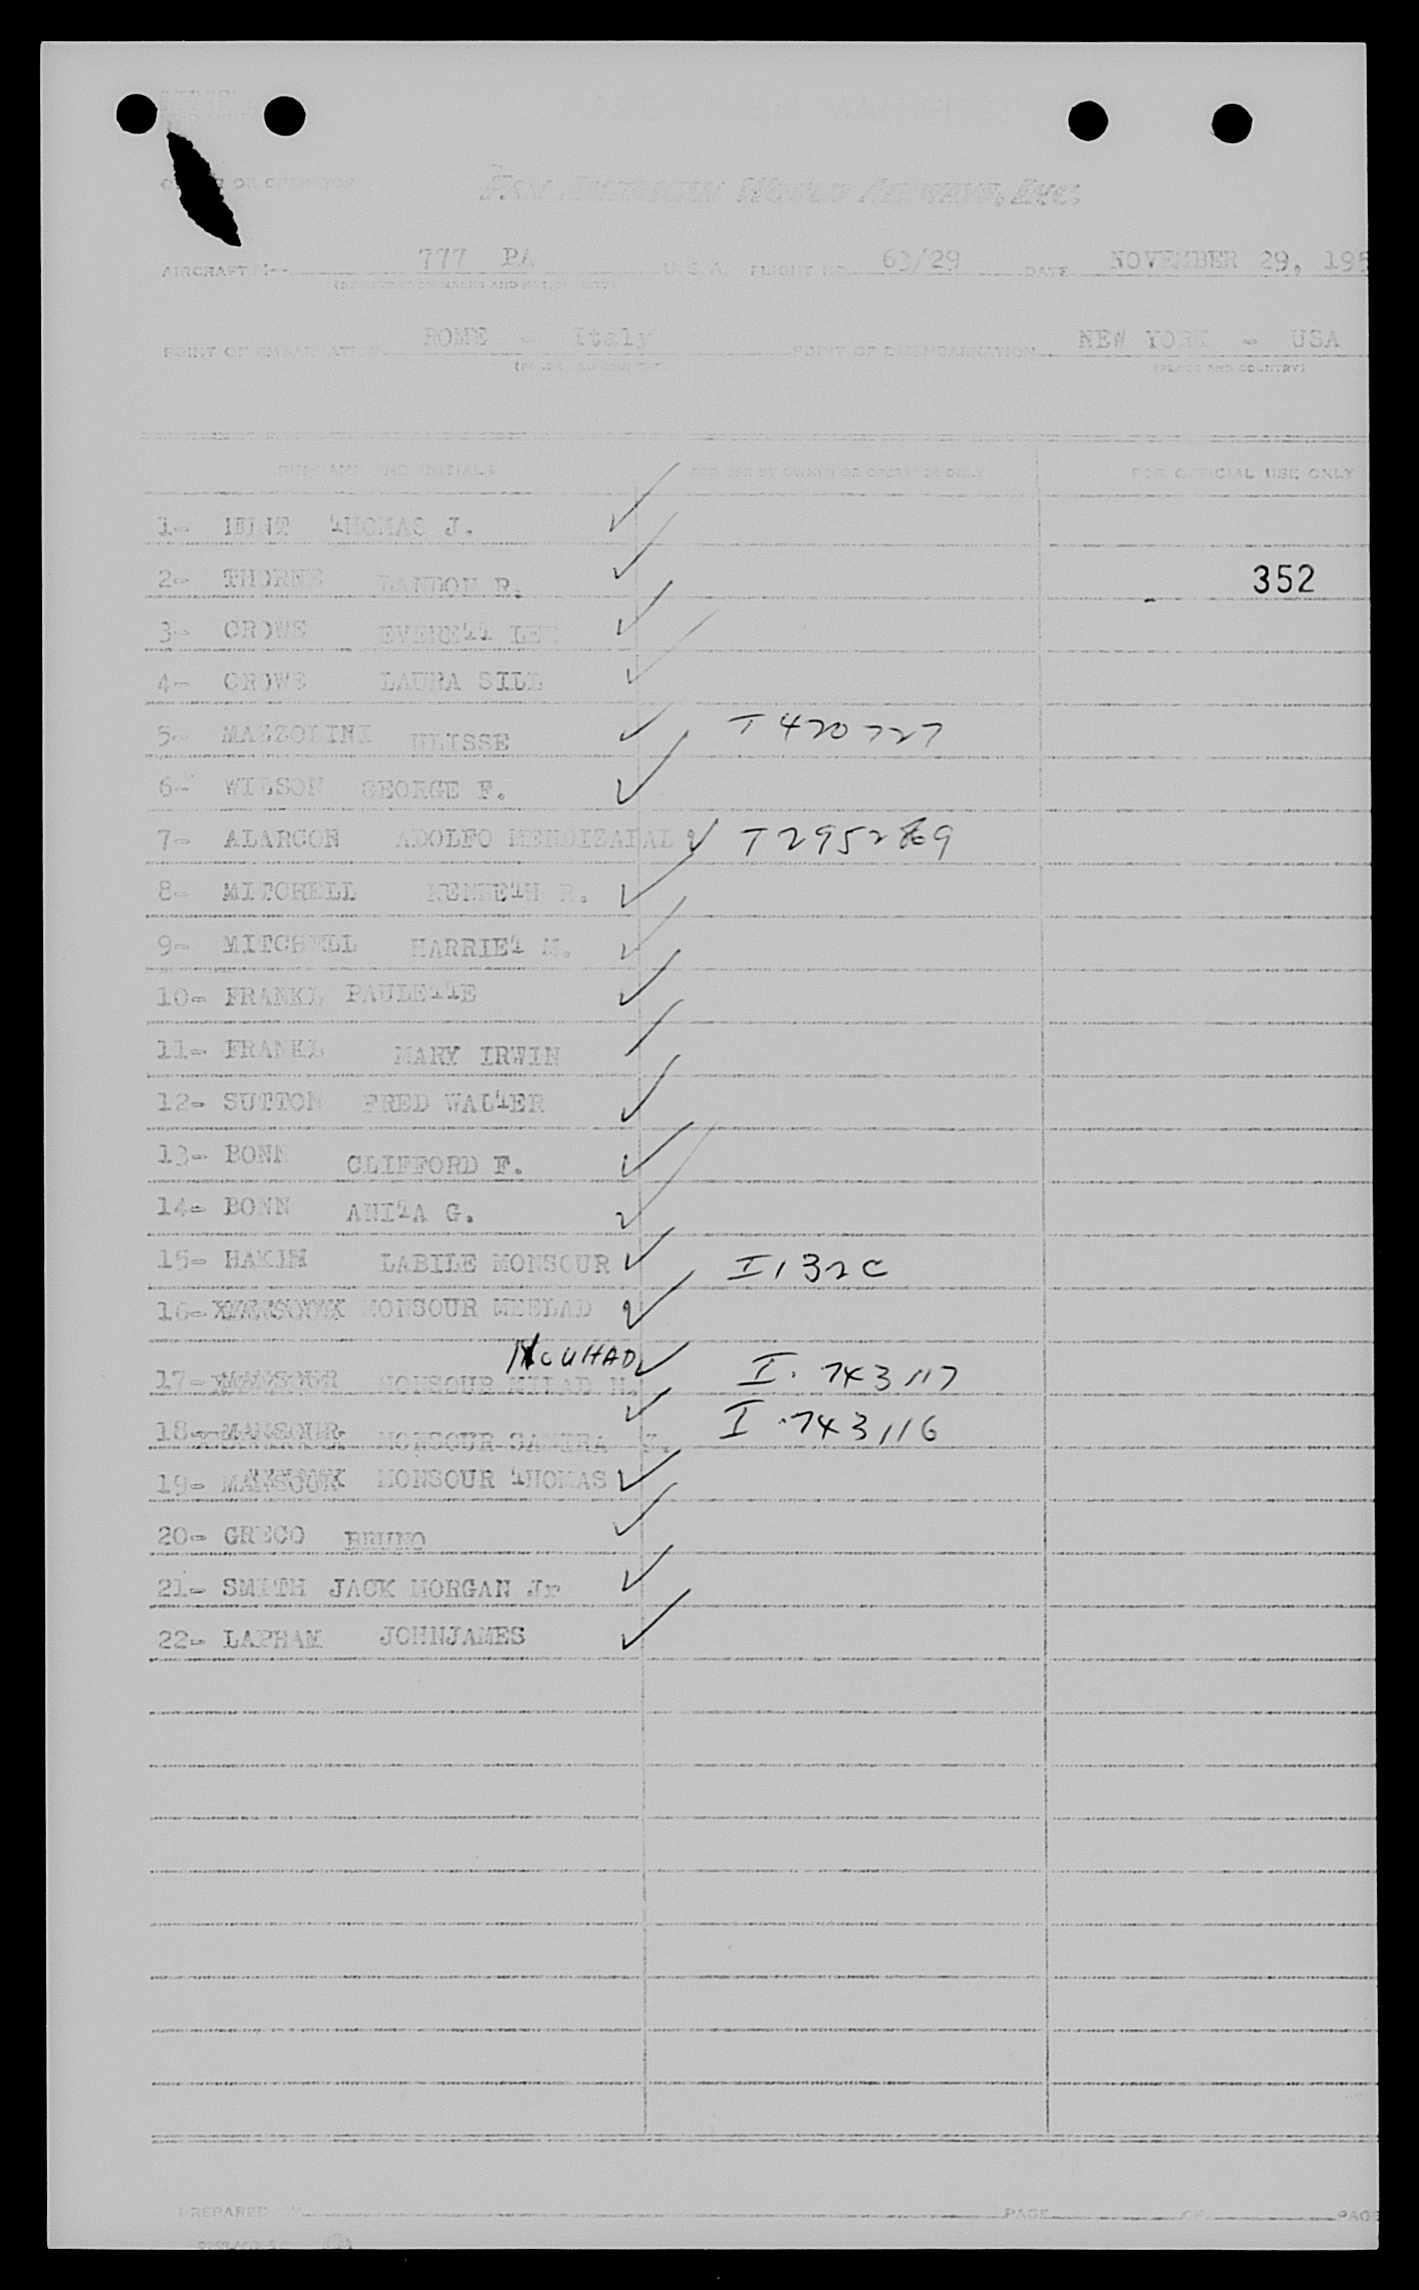 OWNER OR OPERATOR PAN AMERICAN WORLD AIRWAYS, INC.
AIRCRAFT 777 PA U.S.A. FLIGHT NO. 63/29 DATE NOVEMBER 29, 195
POINT OF EMBARKATION ROME - Italy POINT OF DISEMBARKATION NEW YORK - USA
(PLACE AND COUNTRY) (PLACE AND COUNTRY)
SURNAME AND INITIALS FOR USE BY OWNER OR OPERATOR ONLY FOR OFFICIAL USE ONLY
1- HUNT THOMAS J.
2- THORNE LANDON R. 352
3- CROWE EVERETT LEE
4- CROWE LAURA SILL
5- MAZZOLINI ULISSE T 420727
6- WILSON GEORGE F.
7- ALARCON ADOLFO MENDIZABAL T295269
8- MITCHELL KENNETH R.
9- MITCHELL HARRIET M.
10- FRANKL PAULETTE
11- FRANKL MARY IRWIN
12- SUTTON FRED WALTER
13- BONN CLIFFORD F.
14- BONN ANITA G.
15- HAKIM LABILE MONSOUR I 132C
16- MONSOUR MEELAD
NOUHAD
17- MANSOUR MONSOUR MILAD N. I. 743117
18- MANSOUR MONSOUR SAMIRA I. 743116
19- MANSOUR MONSOUR THOMAS
20- GRECO BRUNO
21- SMITH JACK MORGAN Jr
22- LAPHAM JOHNJAMES
PREPARED BY PAGE OF PAG